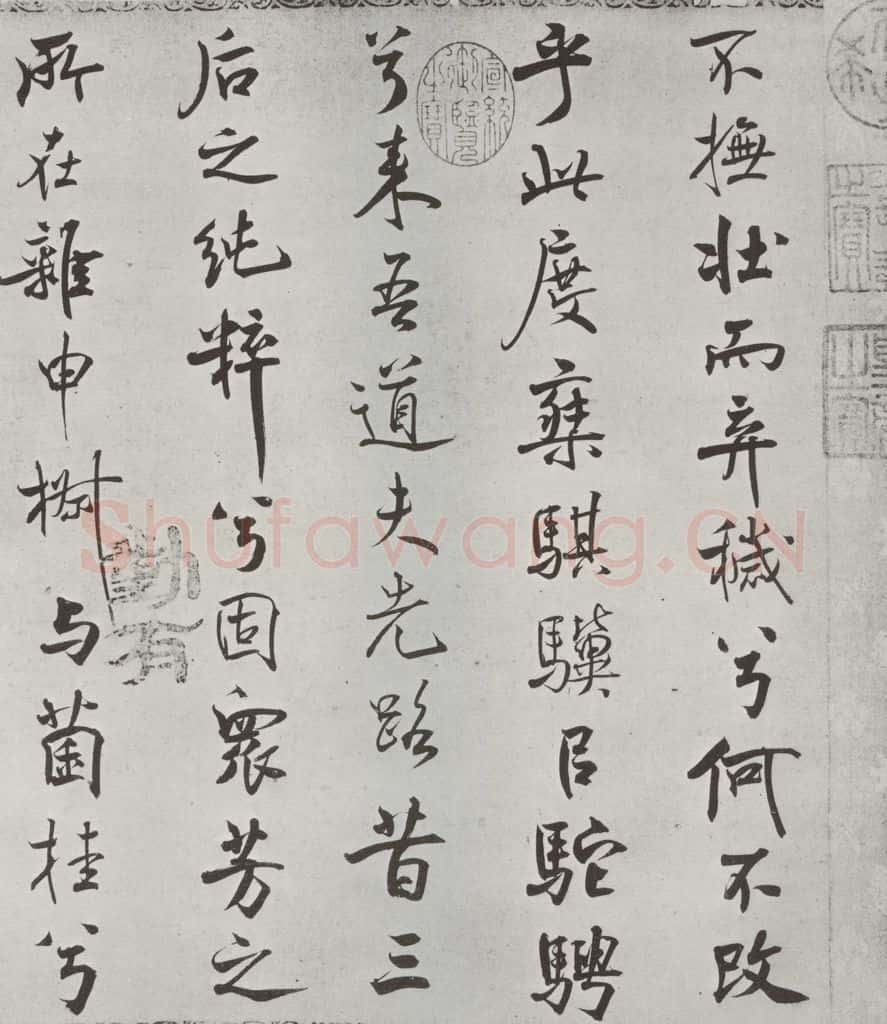 不撫壯而弃穢兮何不改
乎此度椉騏驥㠯駝騁
兮来吾道夫先路昔三
后之純粹兮固衆芳之
所在雜申椒与菌桂兮
宣統御覽之寶
Shufawang.CN